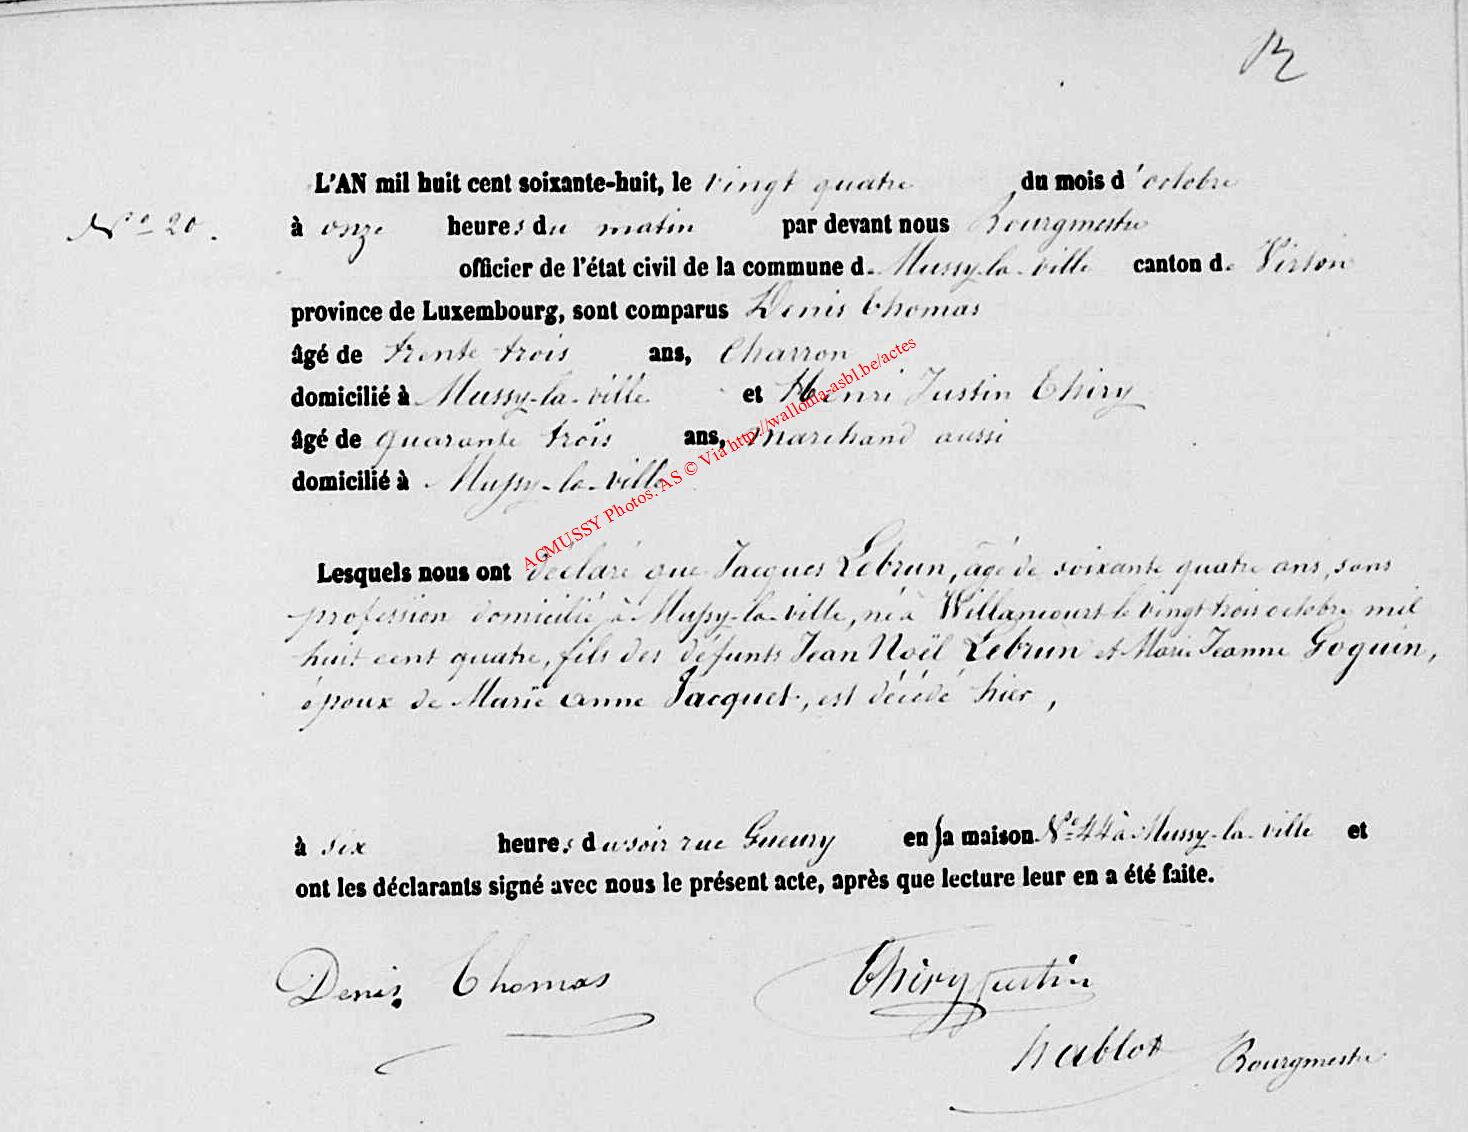 L'AN mil huit cent soixante-huit, le vingt quatre du mois d'octobre
Nº 20. à onze heures du matin par devant nous Bourgmestre
officier de l'état civil de la commune de Mussy-la-ville canton de Virton
province de Luxembourg, sont comparus Denis Thomas
âgé de trente trois ans, Charron
domicilié à Mussy-la-ville et Henri Justin Thiry
âgé de quarante trois ans, marchand aussi
domicilié à Mussy-la-ville
ACMUSSY Photos. AS © Via http://wallonia-asbl.be/actes
Lesquels nous ont déclaré que Jacques Lebrun, âgé de soixante quatre ans, sans
profession domicilié à Mussy-la-ville, né à Willancourt le vingt trois octobre mil
huit cent quatre, fils des défunts Jean Noël Lebrun et Marie Jeanne Goguin,
époux de Marie anne Jacquet, est décédé hier,
à six heures du soir rue Gueury en sa maison Nº 44 à Mussy-la-ville et
ont les déclarants signé avec nous le présent acte, après que lecture leur en a été faite.
Denis Thomas Thiry Justin
Bourgmestre